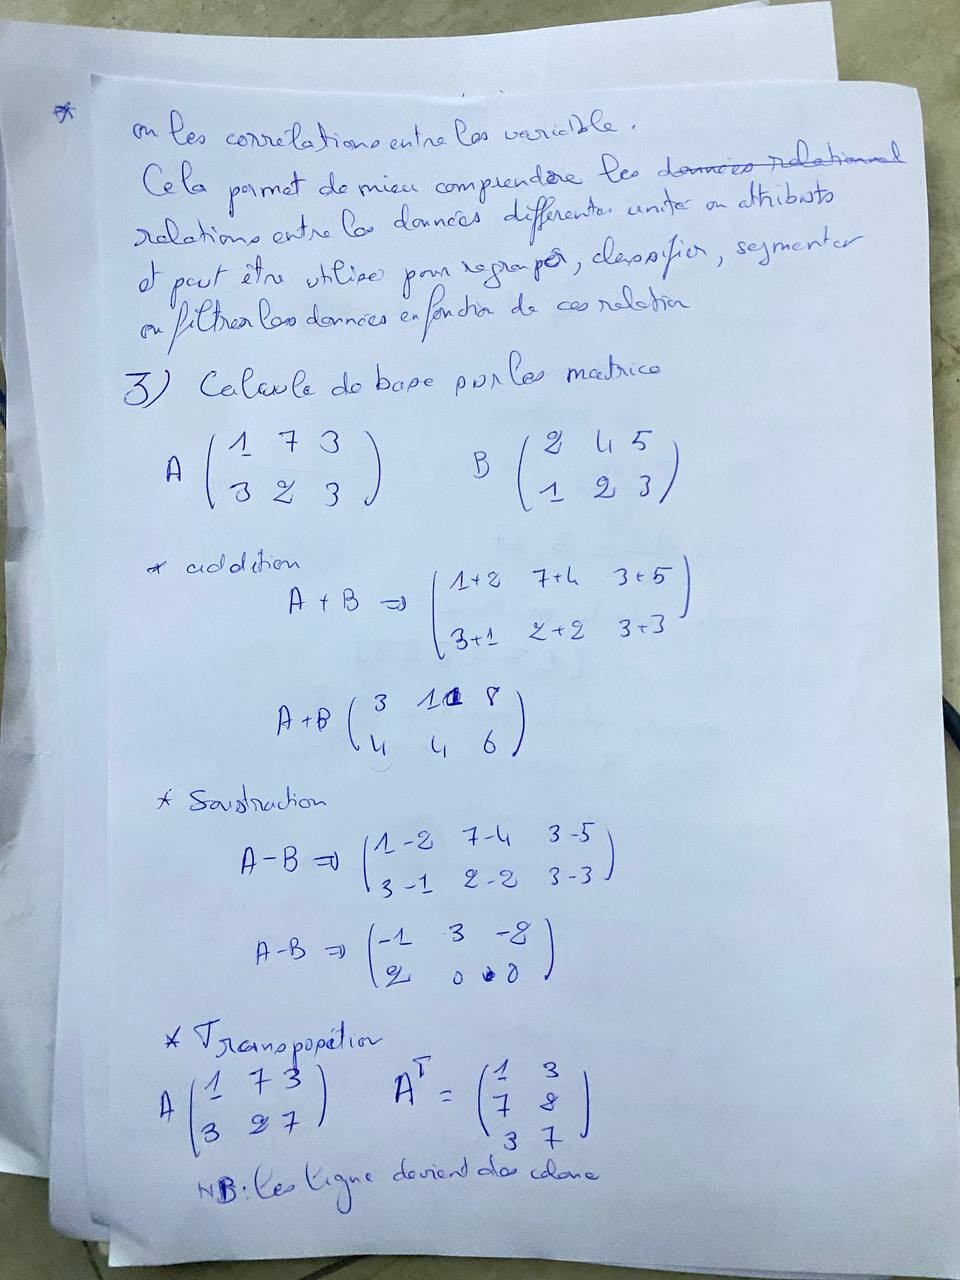 *
ou les corrélations entre les variable.
Cela permet de mieu comprendere les données relationnel
relations entre les données differentes unité ou attributs
et peut être utilise pour regrouper, classifier, segmenter
ou filtrer les données en fonction de ces relation
3) Calcule de base pour les matrice
A ( 1 7 3 ) B ( 2 4 5 )
( 3 2 3 ) ( 1 2 3 )
* addition
A + B ⇒ ( 1+2 7+4 3+5 )
( 3+1 2+2 3+3 )
A+B ( 3 11 8 )
( 4 4 6 )
* Soustraction
A-B ⇒ ( 1-2 7-4 3-5 )
( 3-1 2-2 3-3 )
A-B ⇒ ( -1 3 -2 )
( 2 0 0 )
* Transpopétion
A ( 1 7 3 ) Aᵀ = ( 1 3 )
( 3 2 7 ) ( 7 2 )
( 3 7 )
NB: les ligne devient des colone